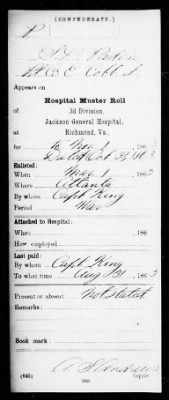 (CONFEDERATE.)
P
Cobb's L
Appears on
Hospital Muster Roll
3d Division,
Jackson General Hospital,
at Richmond, Va.,
for to Nov 1, 186 3
Dated Oct 31, 186 3
Enlisted:
When May 1, 186 2
Where Atlanta
By whom Capt King
Period War
Attached to Hospital:
When , 186
How employed
Last paid:
By whom Capt King
To what time Aug 31, 186 3
Present or absent Not Stated
Remarks:
Book mark:
(645)
Copyist.